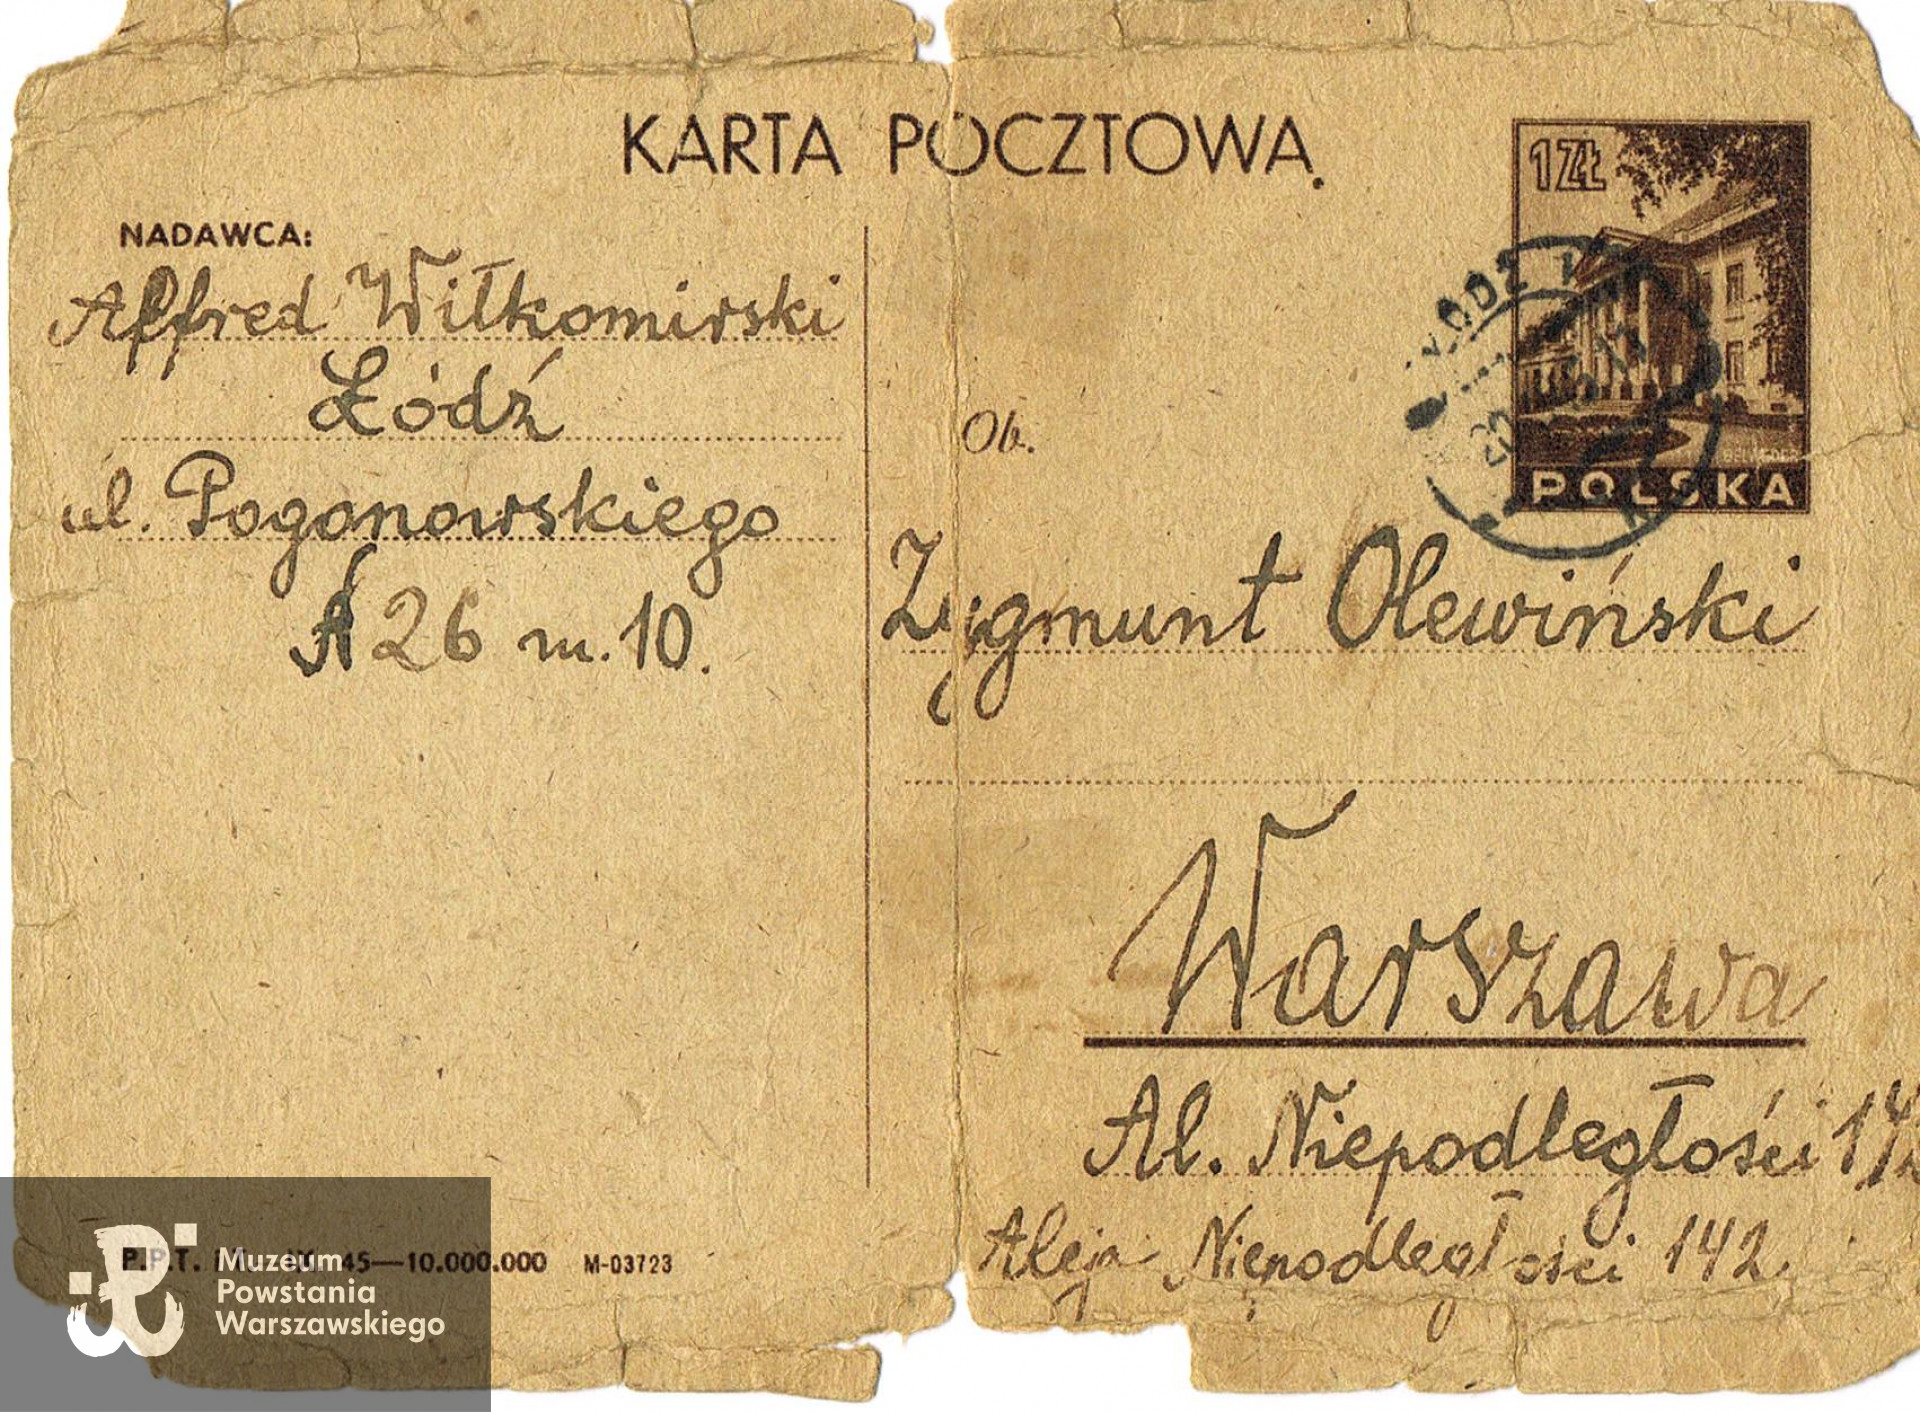 KARTA POCZTOWA.
NADAWCA:
Alfred Wiłkomirski
Łódź
ul. Pogonowskiego
26 m. 10.
1 ZŁ
POLSKA
ŁÓDŹ 1
Ob.
Zygmunt Olewiński
Warszawa
Al. Niepodległości 142
Aleja Niepodległości 142
P.P.T. 45—10.000.000 M-03723
Muzeum
Powstania
Warszawskiego